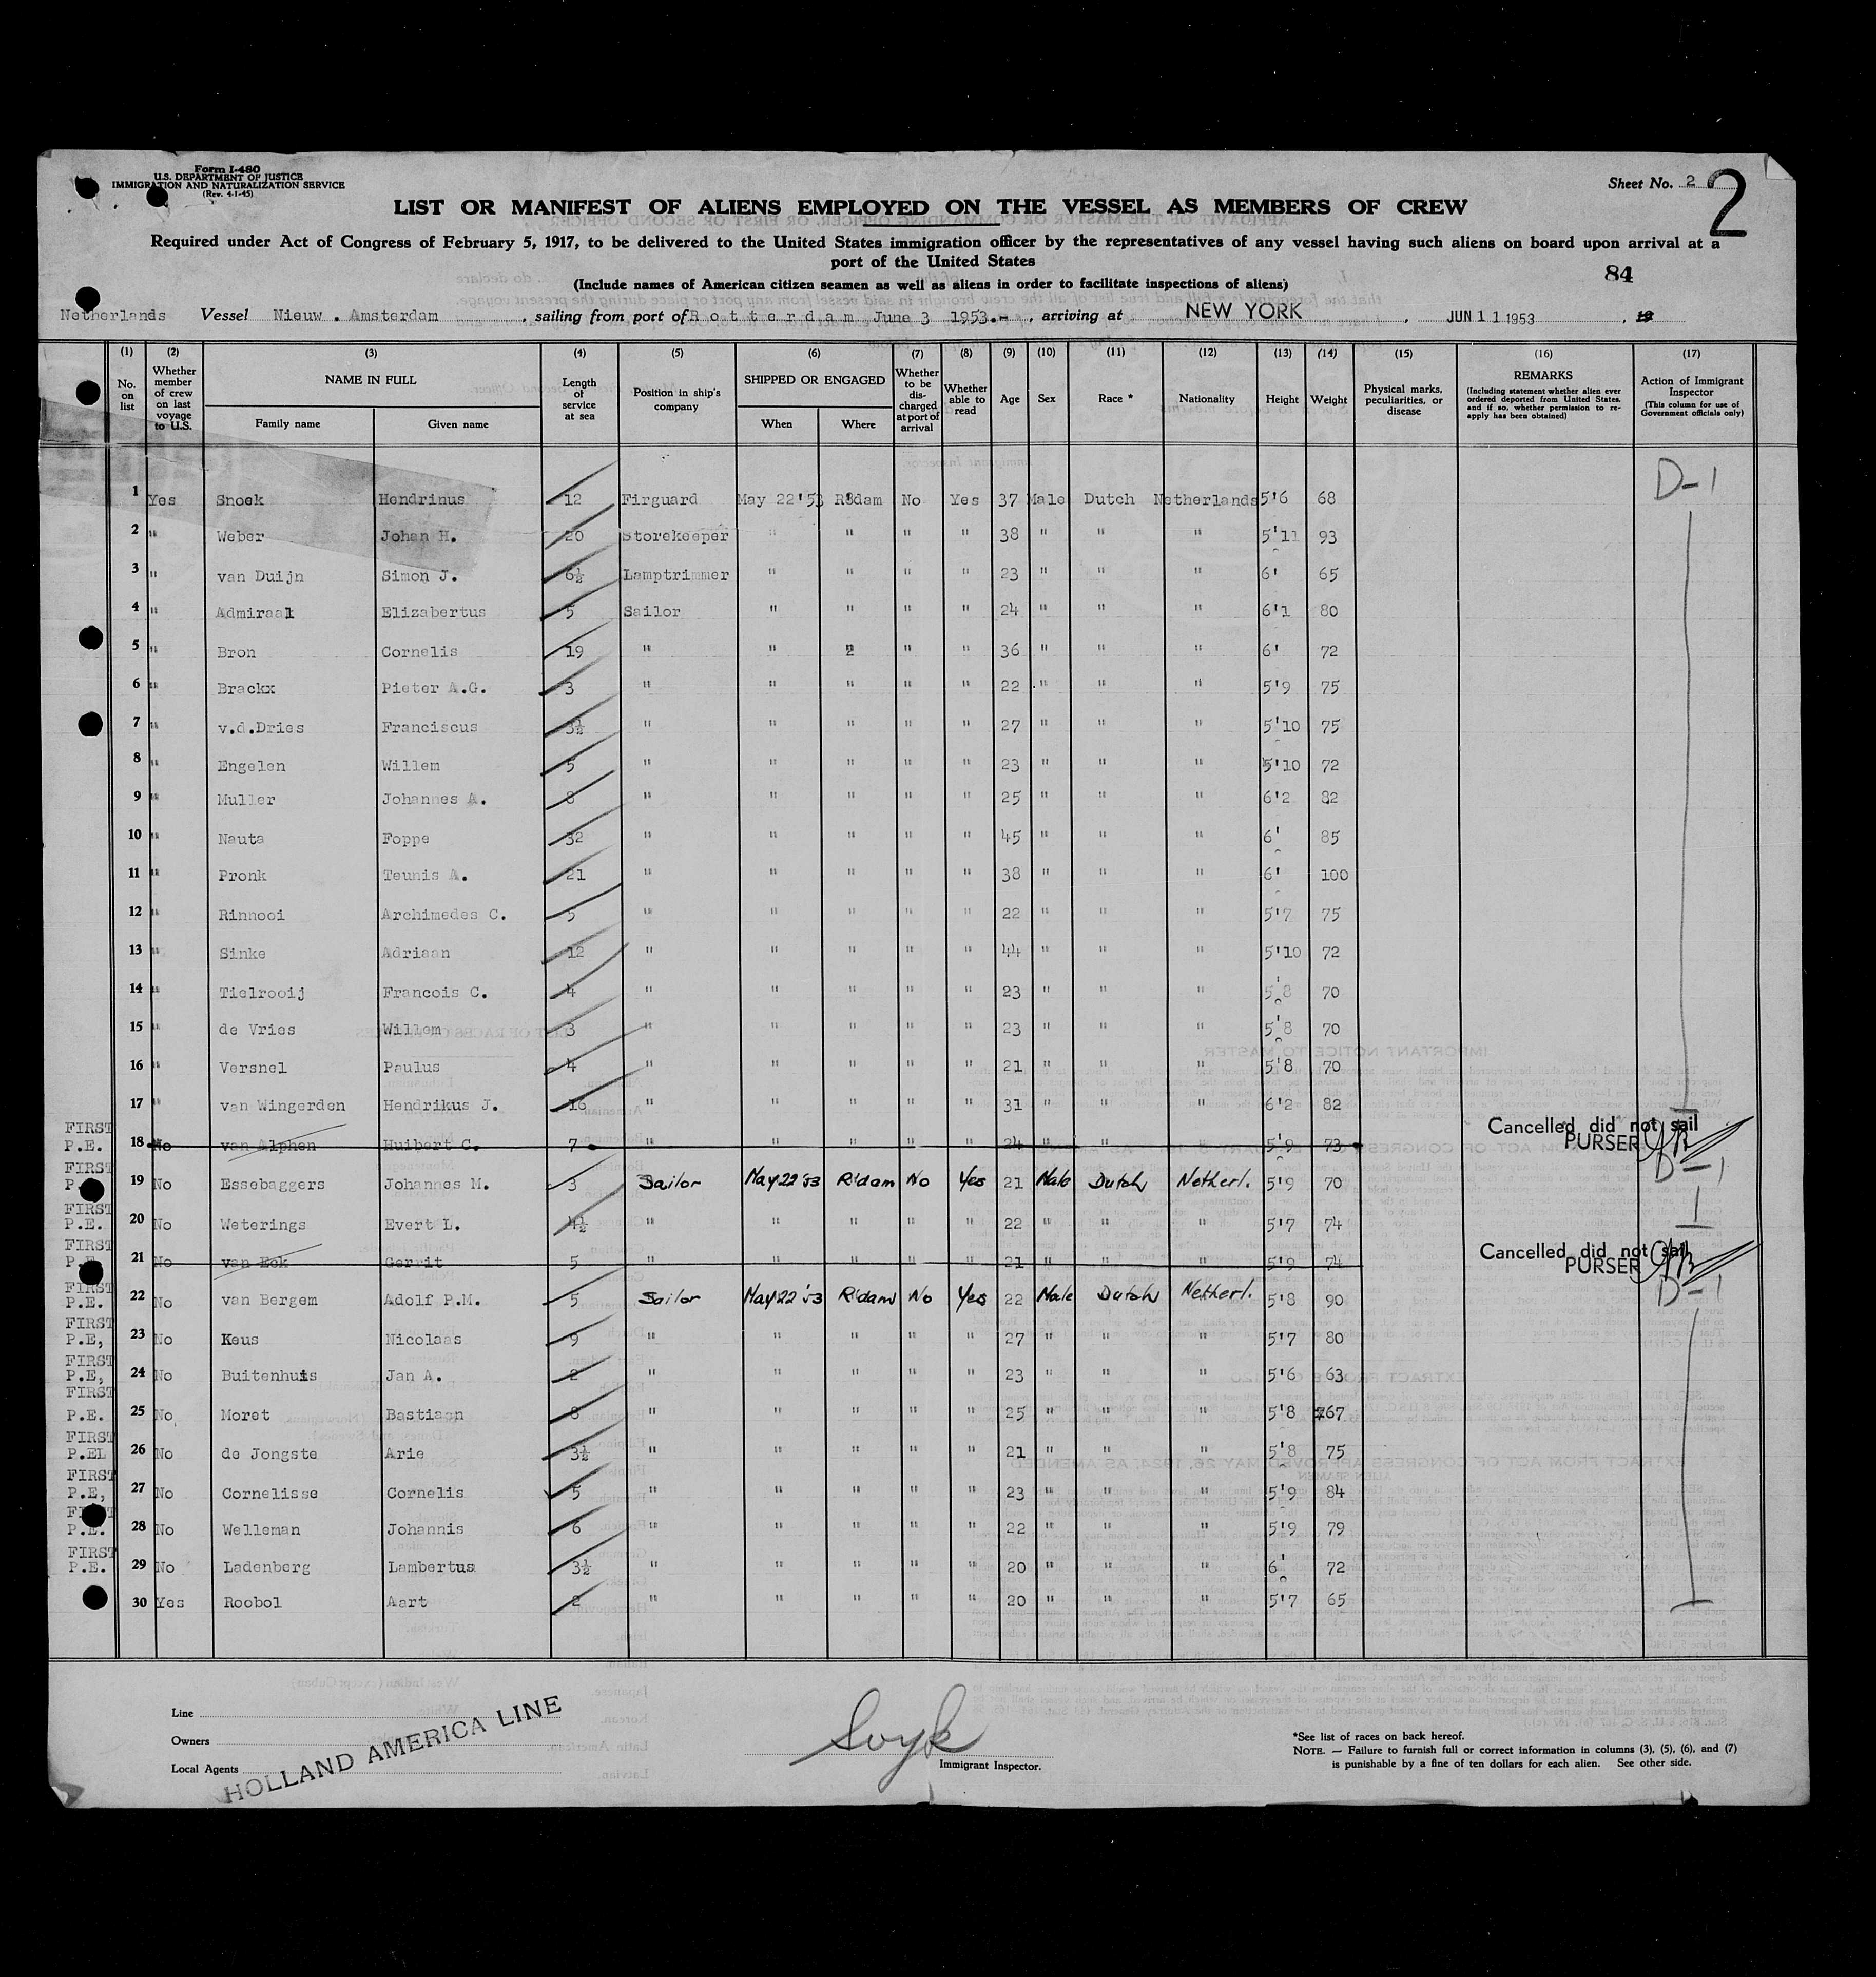 Form I-480
U.S. DEPARTMENT OF JUSTICE
IMMIGRATION AND NATURALIZATION SERVICE
(Rev. 4-1-45)
Sheet No. 2
2
LIST OR MANIFEST OF ALIENS EMPLOYED ON THE VESSEL AS MEMBERS OF CREW
Required under Act of Congress of February 5, 1917, to be delivered to the United States immigration officer by the representatives of any vessel having such aliens on board upon arrival at a
port of the United States
84
(Include names of American citizen seamen as well as aliens in order to facilitate inspections of aliens)
Netherlands Vessel Nieuw . Amsterdam , sailing from port of Rotterdam June 3 1953.- , arriving at NEW YORK , JUN 11 1953 , 19
(1) No. on list (2) Whether member of crew on last voyage to U.S. (3) NAME IN FULL Family name Given name (4) Length of service at sea (5) Position in ship's company (6) SHIPPED OR ENGAGED When Where (7) Whether to be discharged at port of arrival (8) Whether able to read (9) Age (10) Sex (11) Race * (12) Nationality (13) Height (14) Weight (15) Physical marks, peculiarities, or disease (16) REMARKS (Including statement whether alien ever ordered deported from United States, and if so, whether permission to re-apply has been obtained) (17) Action of Immigrant Inspector (This column for use of Government officials only)
1 Yes Snoek Hendrinus 12 Firguard May 22'53 R'dam No Yes 37 Male Dutch Netherlands 5'6 68 D-1
2 " Weber Johan H. 20 Storekeeper " " " " 38 " " " 5'11 93
3 " van Duijn Simon J. 6½ Lamptrimmer " " " " 23 " " " 6' 65
4 " Admiraal Elizabertus 5 Sailor " " " " 24 " " " 6'1 80
5 " Bron Cornelis 19 " " " " " 36 " " " 6' 72
6 " Brackx Pieter A.G. 3 " " " " " 22 " " " 5'9 75
7 " v.d.Dries Franciscus 3½ " " " " " 27 " " " 5'10 75
8 " Engelen Willem 5 " " " " " 23 " " " 5'10 72
9 " Muller Johannes A. 8 " " " " " 25 " " " 6'2 82
10 " Nauta Foppe 32 " " " " " 45 " " " 6' 85
11 " Pronk Teunis A. 21 " " " " " 38 " " " 6' 100
12 " Rinnooi Archimedes C. 5 " " " " " 22 " " " 5'7 75
13 " Sinke Adriaan 12 " " " " " 44 " " " 5'10 72
14 " Tielrooij Francois C. 4 " " " " " 23 " " " 5'8 70
15 " de Vries Willem 3 " " " " " 23 " " " 5'8 70
16 " Versnel Paulus 4 " " " " " 21 " " " 5'8 70
17 " van Wingerden Hendrikus J. 16 " " " " " 31 " " " 6'2 82
FIRST P.E. 18 No van Alphen Huibert C. 7 " " " " " 24 " " " 5'9 73 Cancelled did not sail PURSER
FIRST P. 19 No Essebaggers Johannes M. 3 Sailor May 22 '53 R'dam No Yes 21 Male Dutch Netherl. 5'9 70 D-1
FIRST P.E. 20 No Weterings Evert L. 4½ " " " " " 22 " " " 5'7 74
FIRST P.E. 21 No van Eck Gerrit 5 " " " " " 21 " " " 5'9 74 Cancelled did not sail PURSER
FIRST P.E. 22 No van Bergem Adolf P.M. 5 Sailor May 22 '53 R'dam No Yes 22 Male Dutch Netherl. 5'8 90 D-1
FIRST P.E, 23 No Keus Nicolaas 9 " " " " " 27 " " " 5'7 80
FIRST P.E, 24 No Buitenhuis Jan A. 2 " " " " " 23 " " " 5'6 63
FIRST P.E. 25 No Moret Bastiaan 8 " " " " " 25 " " " 5'8 67
FIRST P.EL 26 No de Jongste Arie 3½ " " " " " 21 " " " 5'8 75
FIRST P.E, 27 No Cornelisse Cornelis 5 " " " " " 23 " " " 5'9 84
FIRST P.E. 28 No Welleman Johannis 6 " " " " " 22 " " " 5'9 79
FIRST P.E. 29 No Ladenberg Lambertus 3½ " " " " " 20 " " " 6' 72
30 Yes Roobol Aart 2 " " " " " 20 " " " 5'7 65
Line
Owners
Local Agents
HOLLAND AMERICA LINE
Immigrant Inspector.
*See list of races on back hereof.
NOTE. — Failure to furnish full or correct information in columns (3), (5), (6), and (7)
is punishable by a fine of ten dollars for each alien. See other side.